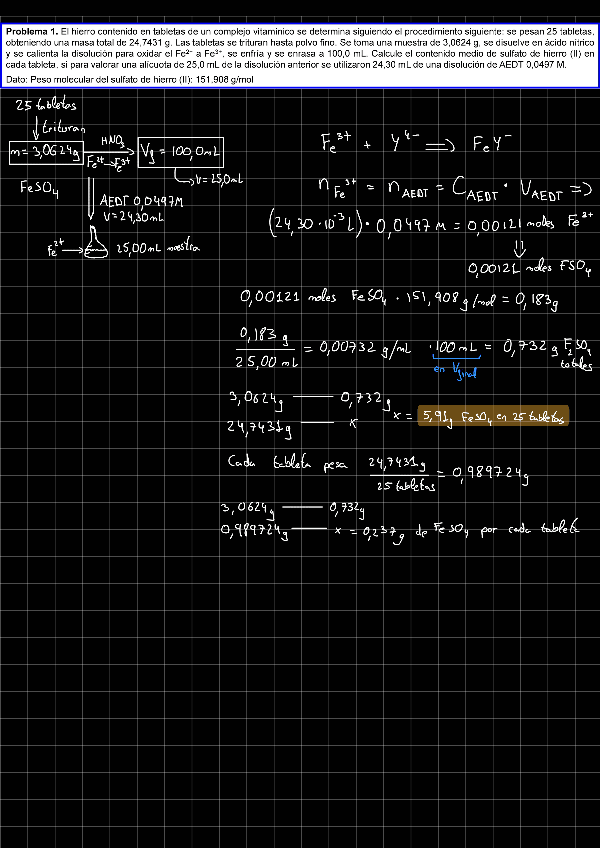 Problema 1. El hierro contenido en tabletas de un complejo vitamínico se determina siguiendo el procedimiento siguiente: se pesan 25 tabletas, obteniendo una masa total de 24,7431 g. Las tabletas se trituran hasta polvo fino. Se toma una muestra de 3,0624 g, se disuelve en ácido nítrico y se calienta la disolución para oxidar el Fe²⁺ a Fe³⁺, se enfría y se enrasa a 100,0 mL. Calcule el contenido medio de sulfato de hierro (II) en cada tableta, si para valorar una alícuota de 25,0 mL de la disolución anterior se utilizaron 24,30 mL de una disolución de AEDT 0,0497 M.
Dato: Peso molecular del sulfato de hierro (II): 151,908 g/mol
25 tabletas
trituran
m = 3,0624g
HNO₃
Fe²⁺→Fe³⁺
Vg = 100,0mL
V=25,0mL
FeSO₄
AEDT 0,0497M
V=24,30mL
Fe²⁺ → 25,00mL muestra
Fe³⁺ + Y⁴⁻ ⇒ FeY⁻
n Fe³⁺ = n AEDT = C AEDT · V AEDT ⇒
(24,30·10⁻³L)·0,0497 M = 0,00121 moles Fe²⁺
⇓
0,00121 moles FSO₄
0,00121 moles FeSO₄ · 151,908 g/mol = 0,183g
0,183 g / 25,00 mL = 0,00732 g/mL · 100 mL = 0,732 g F₂SO₄ totales
en Vfinal
3,0624g —— 0,732g
24,7431g —— x
x = 5,91g FeSO₄ en 25 tabletas
Cada tableta pesa 24,7431g / 25 tabletas = 0,989724g
3,0624g —— 0,732g
0,989724g —— x = 0,237g de FeSO₄ por cada tableta